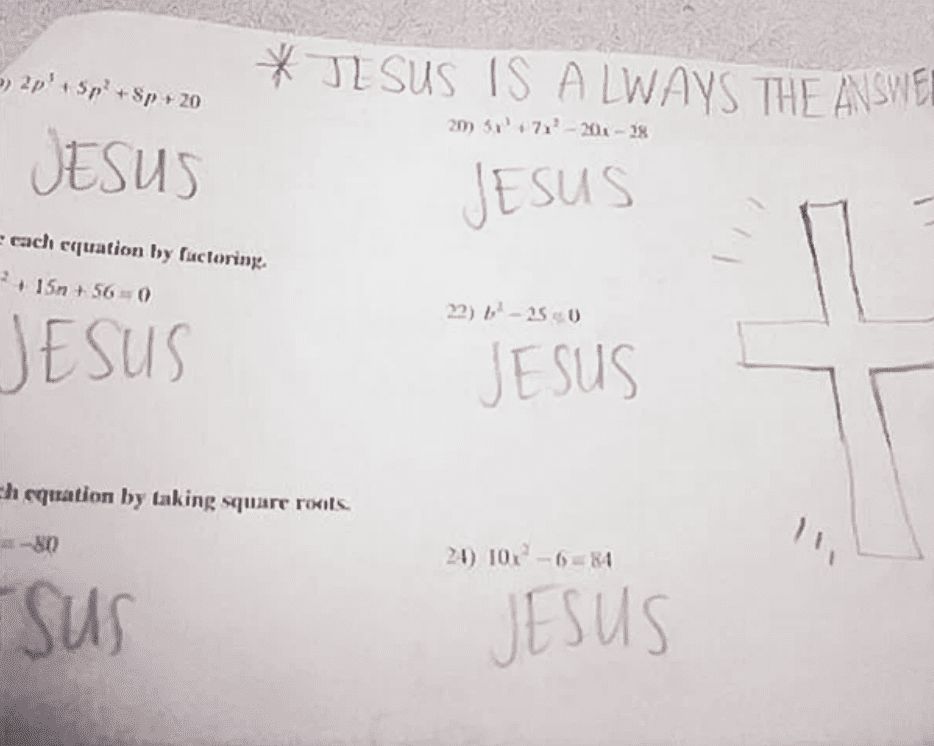 * JESUS IS ALWAYS THE ANSWE
2p³ + 5p² + 8p + 20
20) 5x³ + 7x² − 20x − 28
JESUS
JESUS
each equation by factoring.
² + 15n + 56 = 0
22) b² − 25 = 0
JESUS
JESUS
ch equation by taking square roots.
= −80
24) 10x² − 6 = 84
SUS
JESUS